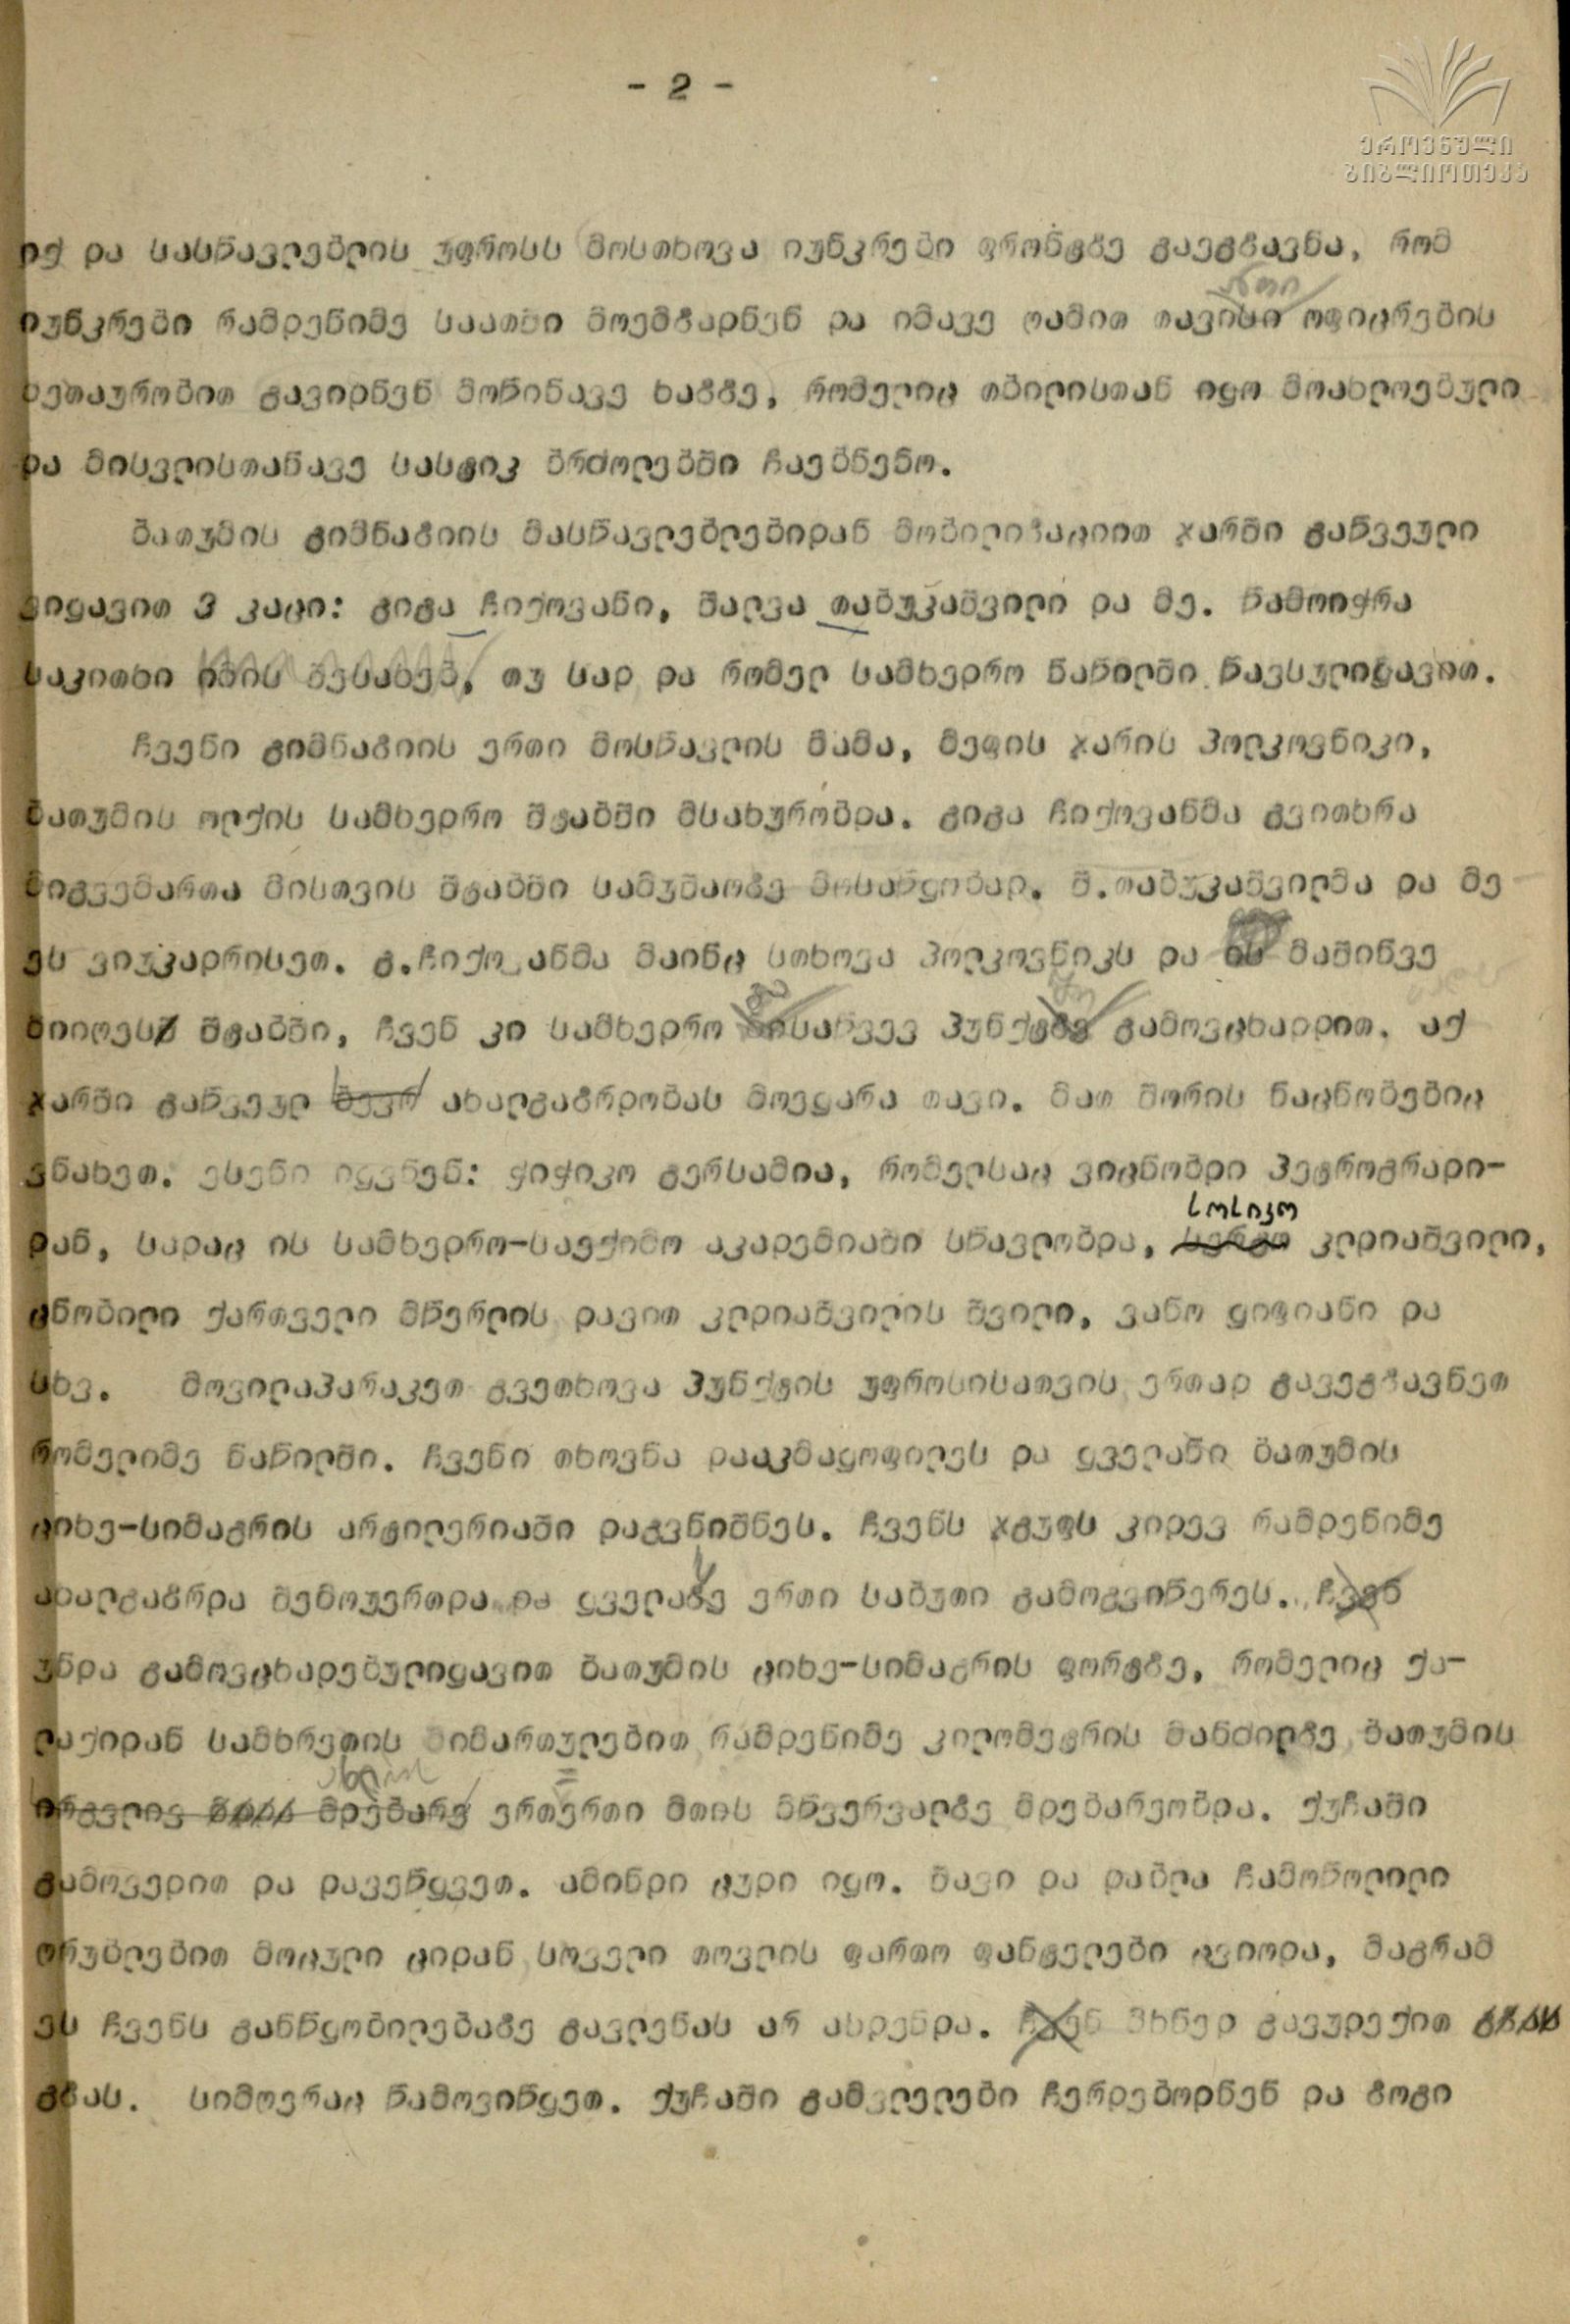 - 2 -
ეროვნული
ბიბლიოთეკა
იქ და სასწავლებლის უფროსს მოსთხოვა იუნკრები ფრონტზე გაეგზავნა, რომ
იუნკრები რამდენიმე საათში მოემზადნენ და იმავე ღამით თავისი ოფიცრების
მეთაურობით გავიდნენ მოწინავე ხაზზე, რომელიც თბილისთან იყო მოახლოებული
და მისვლისთანავე სასტიკ ბრძოლებში ჩაებნენო.
ბათუმის გიმნაზიის მასწავლებლებიდან მობილიზაციით ჯარში გაწვეული
ვიყავით 3 კაცი: გიგა ჩიქოვანი, შალვა თაბუკაშვილი და მე. წამოიჭრა
საკითხი იმის შესახებ, თუ სად და რომელ სამხედრო ნაწილში წავსულიყავით.
ჩვენი გიმნაზიის ერთი მოსწავლის მამა, მეფის ჯარის პოლკოვნიკი,
ბათუმის ოლქის სამხედრო შტაბში მსახურობდა. გიგა ჩიქოვანმა გვითხრა
მიგვემართა მისთვის შტაბში სამუშაოზე მოსაწყობად. შ.თაბუკაშვილმა და მე
ეს ვიუკადრისეთ. გ.ჩიქო ანმა მაინც სთხოვა პოლკოვნიკს და ის მაშინვე
მიიღეს შტაბში, ჩვენ კი სამხედრო მისაწვევ პუნქტზე გამოვცხადდით. აქ
ჯარში გაწვეულ ბევრ ახალგაზრდობას მოეყარა თავი. მათ შორის ნაცნობებიც
ვნახეთ. ესენი იყვნენ: ჭიჭიკო გერსამია, რომელსაც ვიცნობდი პეტროგრადი-
სოსიკო
დან, სადაც ის სამხედრო-საექიმო აკადემიაში სწავლობდა, სერგო კლდიაშვილი,
ცნობილი ქართველი მწერლის დავით კლდიაშვილის შვილი, ვანო ყიფიანი და
სხვ. მოვილაპარაკეთ გვეთხოვა პუნქტის უფროსისათვის ერთად გავეგზავნეთ
რომელიმე ნაწილში. ჩვენი თხოვნა დააკმაყოფილეს და ყველანი ბათუმის
ციხე-სიმაგრის არტილერიაში დაგვნიშნეს. ჩვენს ჯგუფს კიდევ რამდენიმე
ახალგაზრდა შემოუერთდა და ყველაზე ერთი საბუთი გამოგვიწერეს. ჩვენ
უნდა გამოვცხადებულიყავით ბათუმის ციხე-სიმაგრის ფორტზე, რომელიც ქა-
ლაქიდან სამხრეთის მიმართულებით რამდენიმე კილომეტრის მანძილზე ბათუმის
ირგვლივ მდებარე ერთერთი მთის მწვერვალზე მდებარეობდა. ქუჩაში
გამოვედით და დავეწყვეთ. ამინდი ცუდი იყო. შავი და დაბლა ჩამოწოლილი
ღრუბლებით მოცული ციდან სოველი თოვლის ფართო ფანტელები ცვიოდა, მაგრამ
ეს ჩვენს განწყობილებაზე გავლენას არ ახდენდა. ჩვენ მხნედ გავუდექით
გზას. სიმღერაც წამოვიწყეთ. ქუჩაში გამვლელები ჩერდებოდნენ და ზოგი